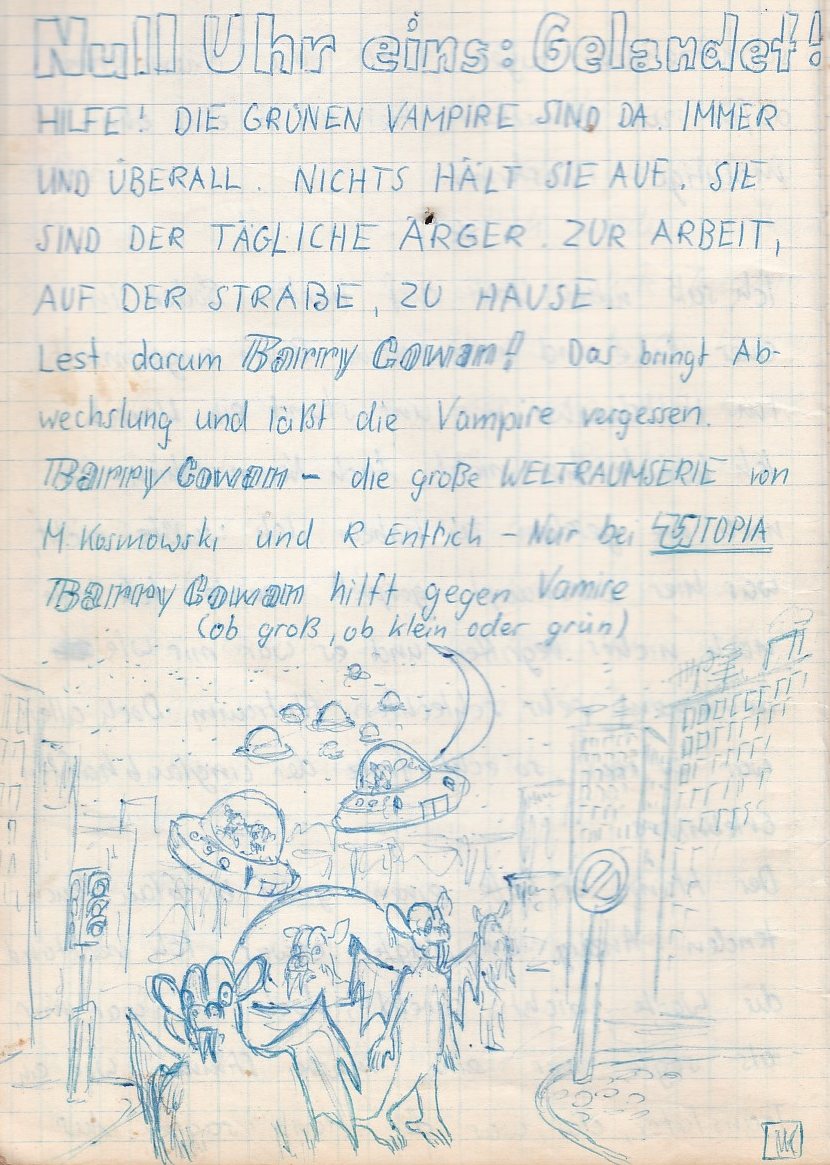 Null Uhr eins: Gelandet!
HILFE! DIE GRÜNEN VAMPIRE SIND DA. IMMER
UND ÜBERALL. NICHTS HÄLT SIE AUF. SIE
SIND DER TÄGLICHE ÄRGER. ZUR ARBEIT,
AUF DER STRAßE, ZU HAUSE.
Lest darum Barry Gowan! Das bringt Ab-
wechslung und läßt die Vampire vergessen.
Barry Gowan - die große WELTRAUMSERIE von
M. Kosmowski und R. Entrich - Nur bei TOPIA
Barry Gowan hilft gegen Vamire
(ob groß, ob klein oder grün)